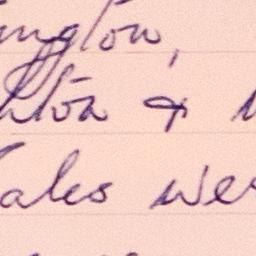 ington,
hton &
ales wer